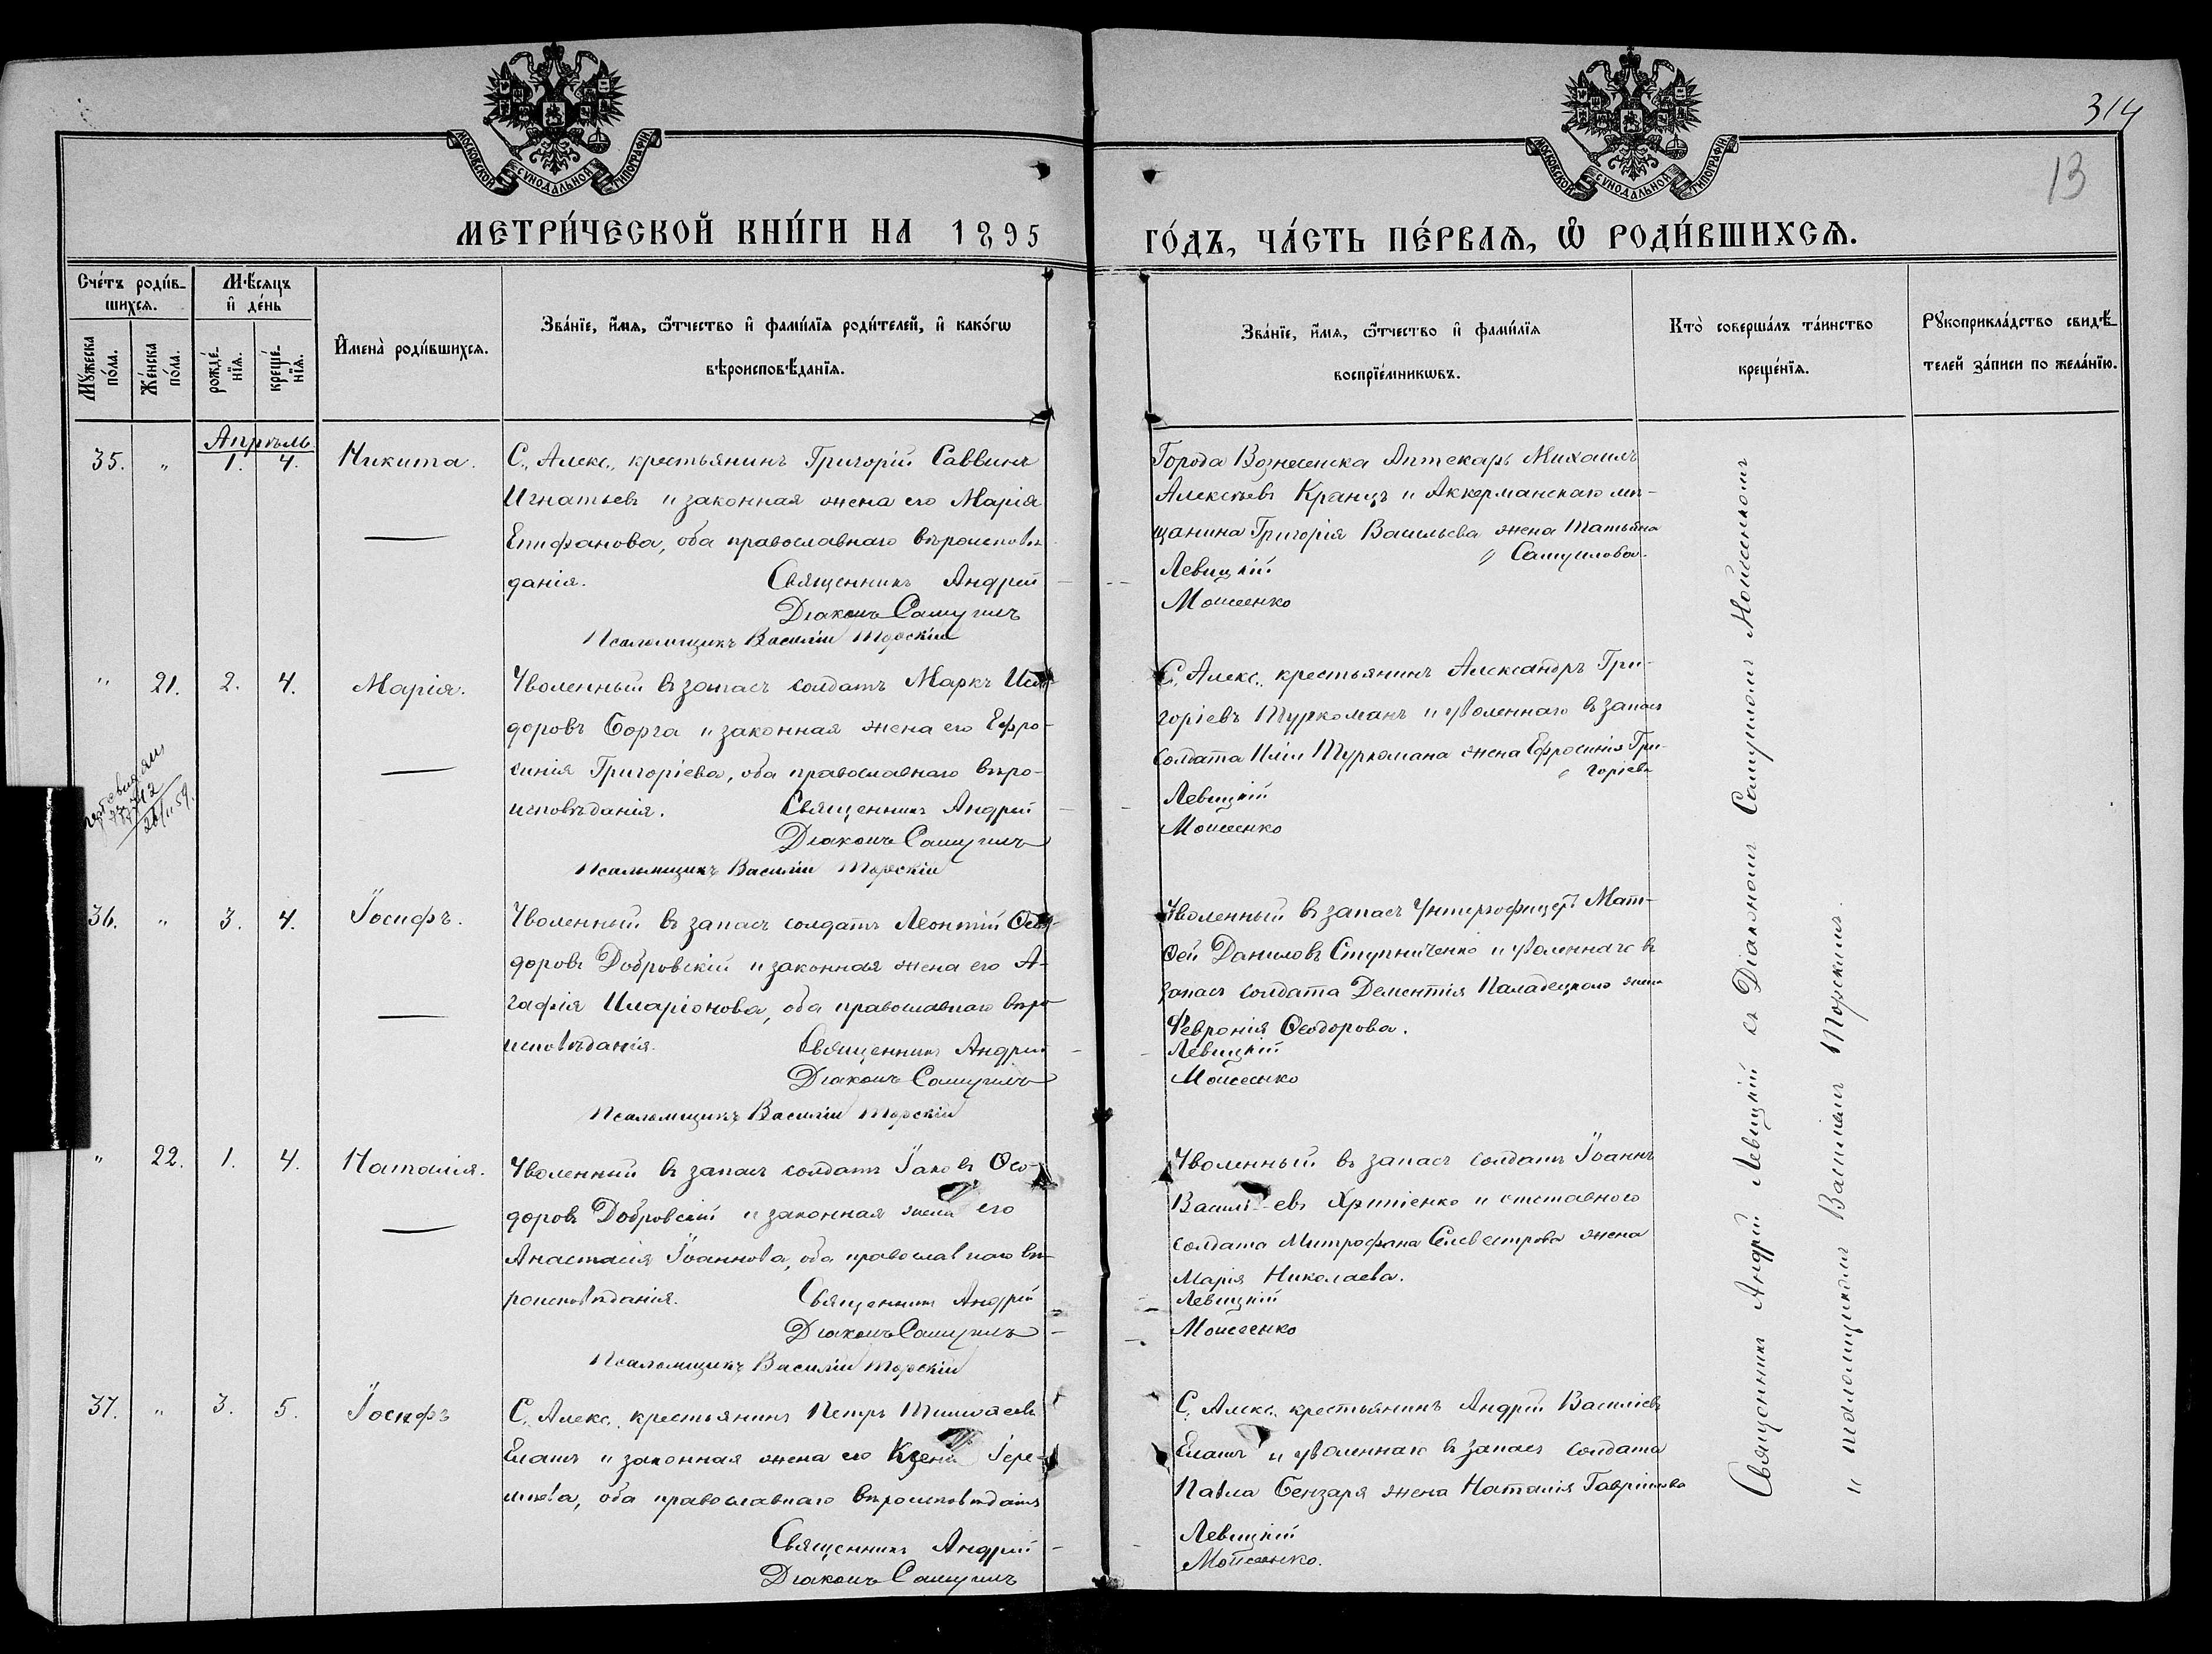 314
13
МОСКОВСКОЙ СѴНОДАЛЬНОЙ ТИПОГРАФІИ
МОСКОВСКОЙ СѴНОДАЛЬНОЙ ТИПОГРАФІИ
МЕТРИ́ЧЕСКОЙ КНИ́ГИ НА 1895 ГО́ДЪ, ЧА́СТЬ ПЕ́РВАѦ, Ѽ РОДИ́ВШИХСѦ.
Сче́тъ роди́в-
шихсѧ.
Мꙋ́жеска
по́ла.
Же́нска
по́ла.
Мѣ́сѧцъ
и҆ де́нь
рожде́-
нїѧ.
креще́-
нїѧ.
И҆мена̀ роди́вшихсѧ.
Зва́нїе, и҆́мѧ, ѻ҆́тчество и҆ фами́лїѧ роди́телей, и҆ како́гѡ
вѣроисповѣ́данїѧ.
Зва́нїе, и҆́мѧ, ѻ҆́тчество и҆ фами́лїѧ
воспрїе́мникѡвъ.
Кто̀ соверша́лъ та́инство
креще́нїѧ.
Рꙋкоприкла́дство свидѣ́-
телей за́писи по жела́нїю.
Апрѣль
35. " 1. 4. Никита.
С., Алекс., крестьянинъ Григорій Саввинъ
Игнатьевъ и законная жена его Марія
Епифанова, оба православнаго вѣроисповѣ-
данія. Священникъ Андрей
Діаконъ Самуилъ
Псаломщикъ Василій Торскій
Города Вознесенска Аптекарь Михаилъ
Алексѣевъ Кранцъ и Аккерманскаго мѣ-
щанина Григорія Васильева жена Татьяна
" Самуилова.
Левицкій
Мойсенко
" 21. 2. 4. Марія.
Уволенный въ запасъ солдатъ Маркъ Иси-
доровъ Борга и законная жена его Ефро-
синія Григоріева, оба православнаго вѣро-
исповѣданія. Священникъ Андрей
Діаконъ Самуилъ
Псаломщикъ Василій Торскій
С., Алекс., крестьянинъ Александръ Гри-
горіевъ Туркоманъ и уволеннаго въ запасъ
солдата Иліи Туркомана жена Ефросинія Гри-
" горіева
Левицкій
Мойсенко
36. " 3. 4. Іосифъ.
Уволенный въ запасъ солдатъ Леонтій Ѳео-
доровъ Добровскій и законная жена его А-
гафія Иларіонова, оба православнаго вѣро-
исповѣданія. Священникъ Андрей
Діаконъ Самуилъ
Псаломщикъ Василій Торскій
Уволенный въ запасъ Унтерофицеръ Мат-
ѳей Даниловъ Ступниченко и уволеннаго въ
запасъ солдата Дементія Паладецкаго жена
Февронія Ѳеодорова.
Левицкій
Мойсенко
" 22. 1. 4. Наталія.
Уволенный въ запасъ солдатъ Іаковъ Ѳео-
доровъ Добровскій и законная жена его
Анастасія Іоаннова, оба православнаго вѣ-
роисповѣданія. Священникъ Андрей
Діаконъ Самуилъ
Псаломщикъ Василій Торскій
Уволенный въ запасъ солдатъ Іоаннъ
Василіевъ Христенко и отставного
солдата Митрофана Селевестрова жена
Марія Николаева.
Левицкій
Мойсеенко
37. " 3. 5. Іосифъ
С., Алекс., крестьянинъ Петръ
Еланъ и законная жена его Ксенія Іере-
міева, оба православнаго вѣроисповѣданія
Священникъ Андрей
Діаконъ Самуилъ
С., Алекс., крестьянинъ Андрей Василіевъ
Еланъ и уволеннаго въ запасъ солдата
Павла Бензаря жена Наталія Гавріилова
Левицкій
Мойсенко.
Священникъ Андрей Левицкій съ Діакономъ Самуиломъ Мойсенкомъ
и псаломщикомъ Василіемъ Торскимъ.